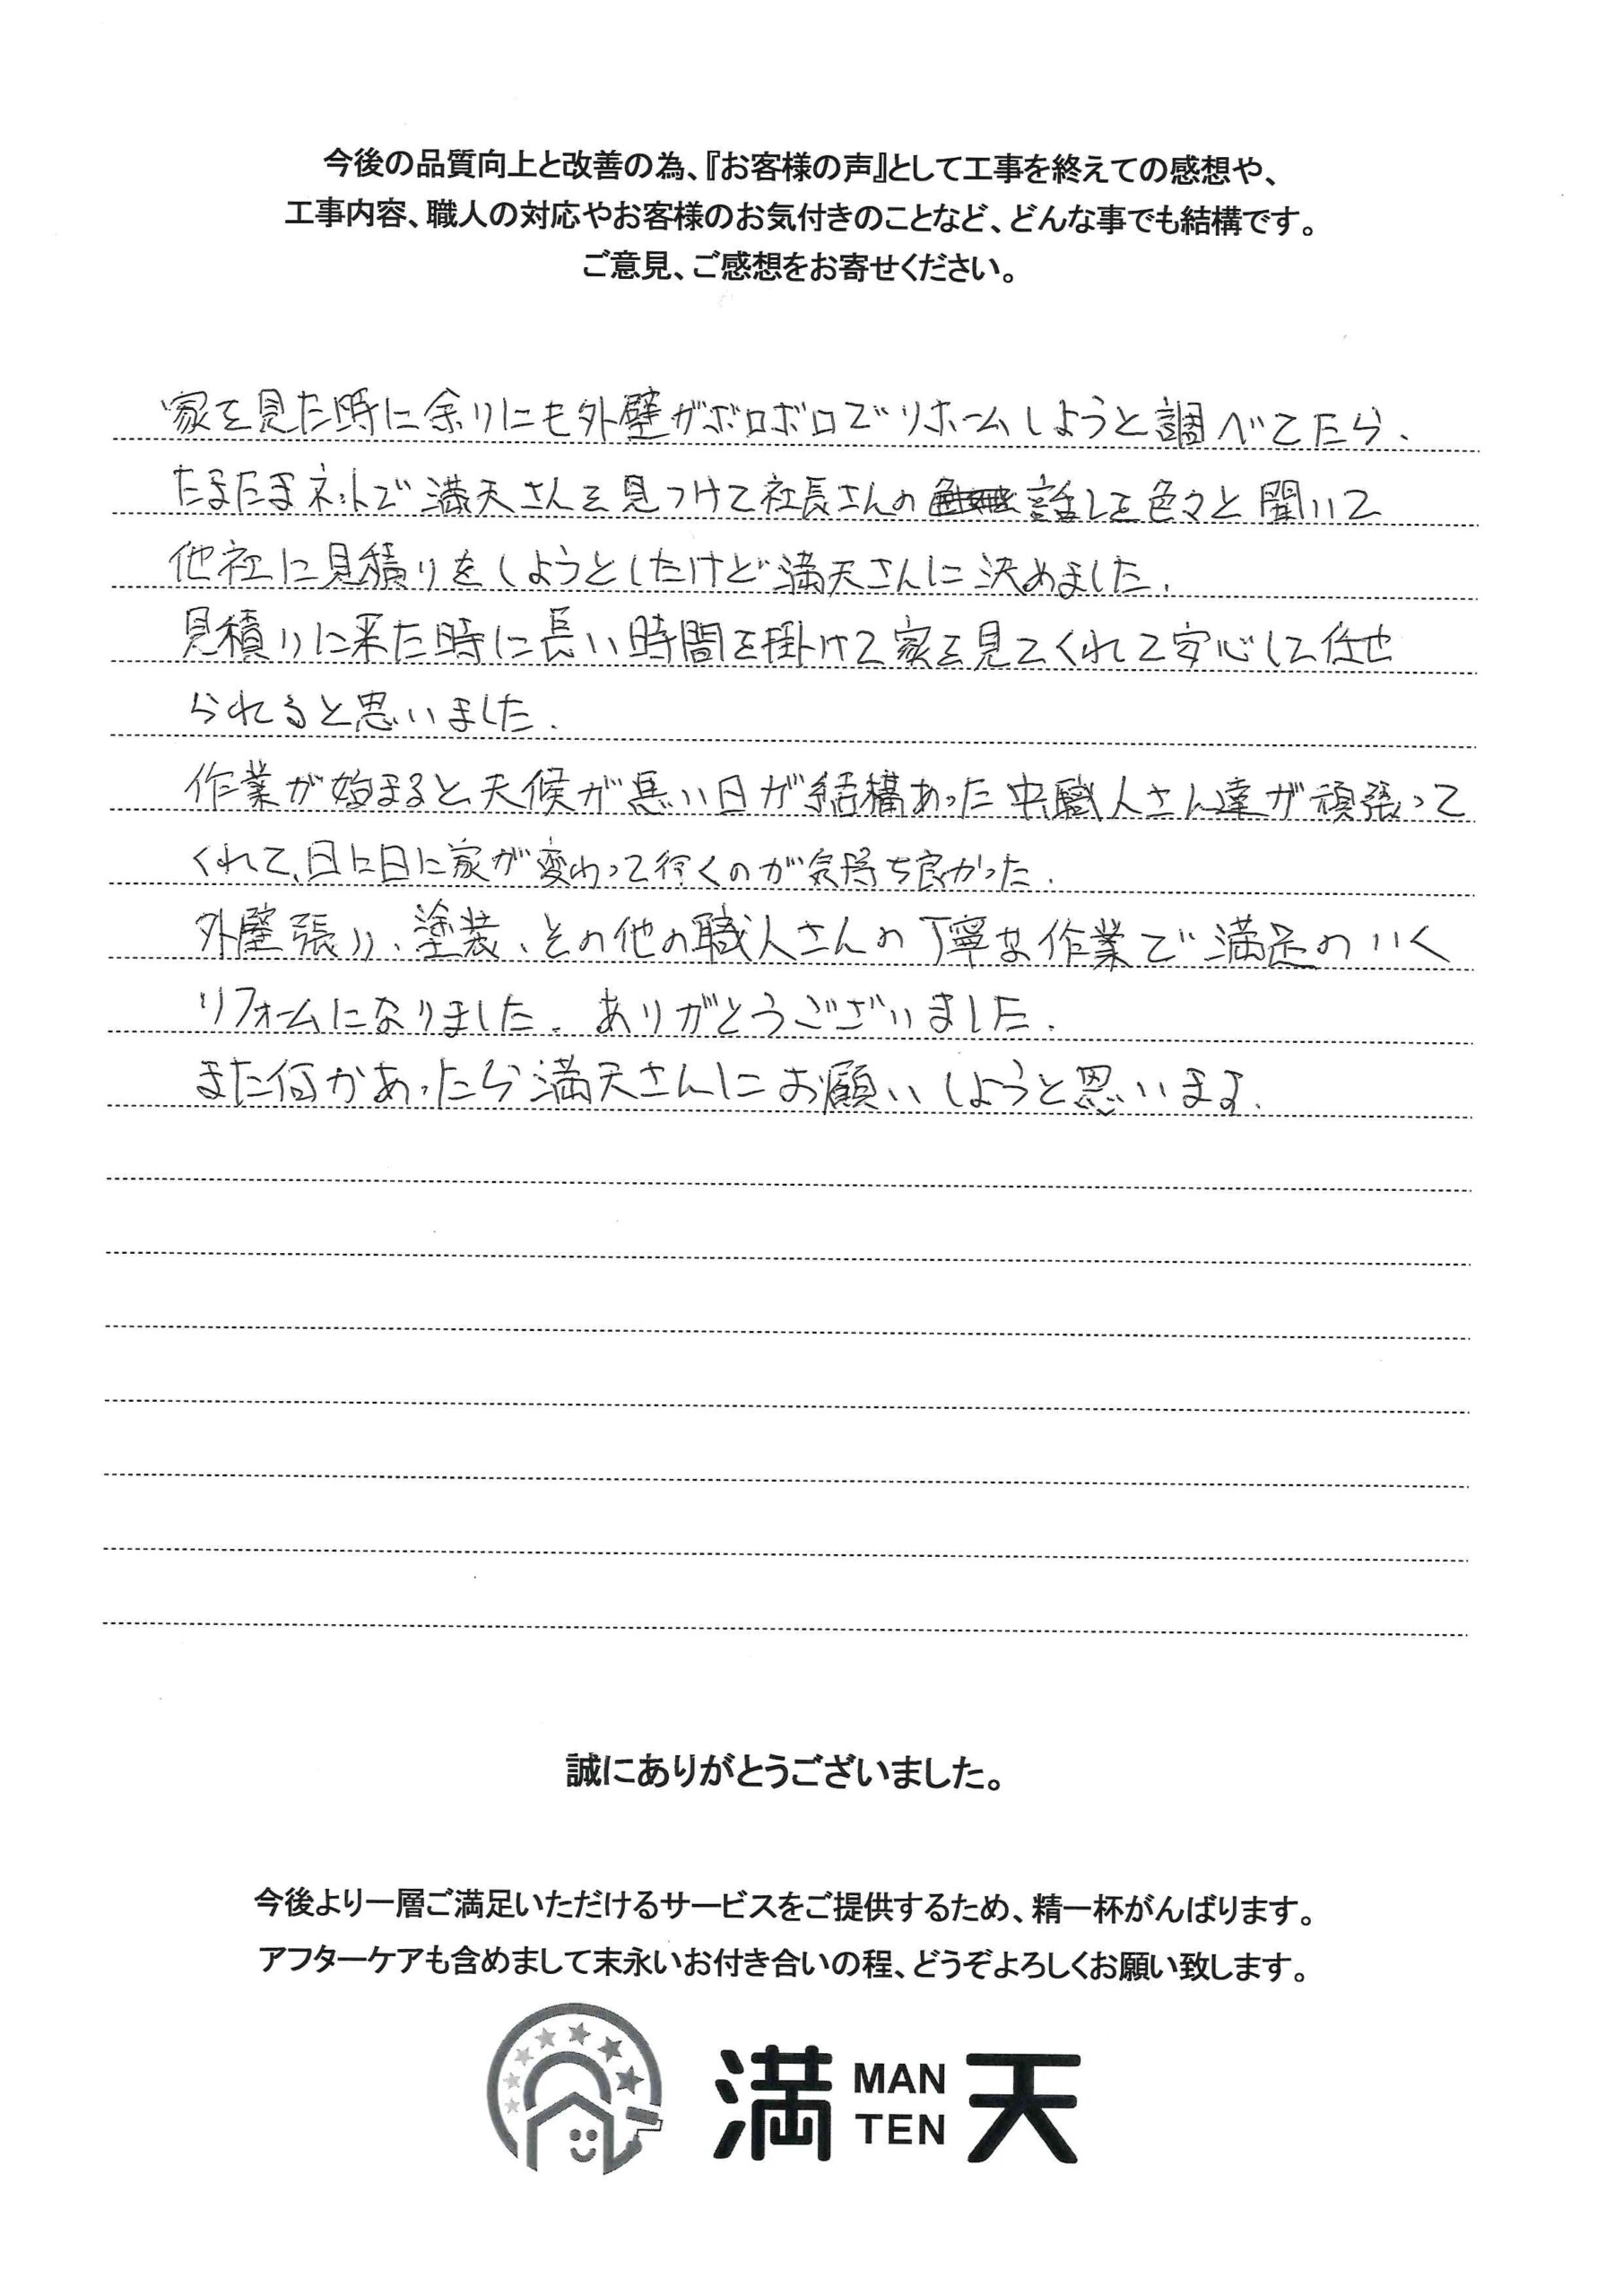 今後の品質向上と改善の為、『お客様の声』として工事を終えての感想や、
工事内容、職人の対応やお客様のお気付きのことなど、どんな事でも結構です。
ご意見、ご感想をお寄せください。
家を見た時に余りにも外壁がボロボロでリホームしようと調べてたら、
たまたまネットで満天さんを見つけて社長さんの話しを色々と聞いて
他社に見積りをしようとしたけど満天さんに決めました.
見積りに来た時に長い時間を掛けて家を見てくれて安心して任せ
られると思いました.
作業が始まると天候が悪い日が結構あった中職人さん達が頑張って
くれて、日に日に家が変わって行くのが気持ち良かった.
外壁張り、塗装、その他の職人さんの丁寧な作業で満足のいく
リフォームになりました. ありがとうございました.
また何かあったら満天さんにお願いしようと思います.
誠にありがとうございました。
今後より一層ご満足いただけるサービスをご提供するため、精一杯がんばります。
アフターケアも含めまして末永いお付き合いの程、どうぞよろしくお願い致します。
満天 MAN TEN